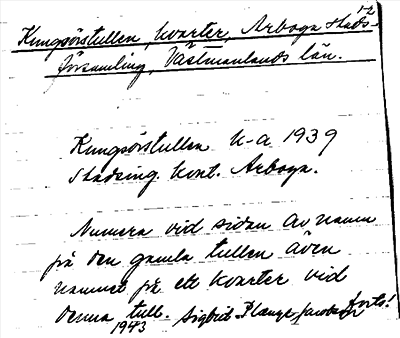 12
Kungsörstullen, kvarter, Arboga stads-
församling, Västmanlands län.
Kungsörstullen k-a 1939
Stadsing. kont. Arboga.
Numera vid sidan av namn
på den gamla tullen även
namnet på ett kvarter vid
denna tull. Sigbrid Plænge Jacobson forts!
1943